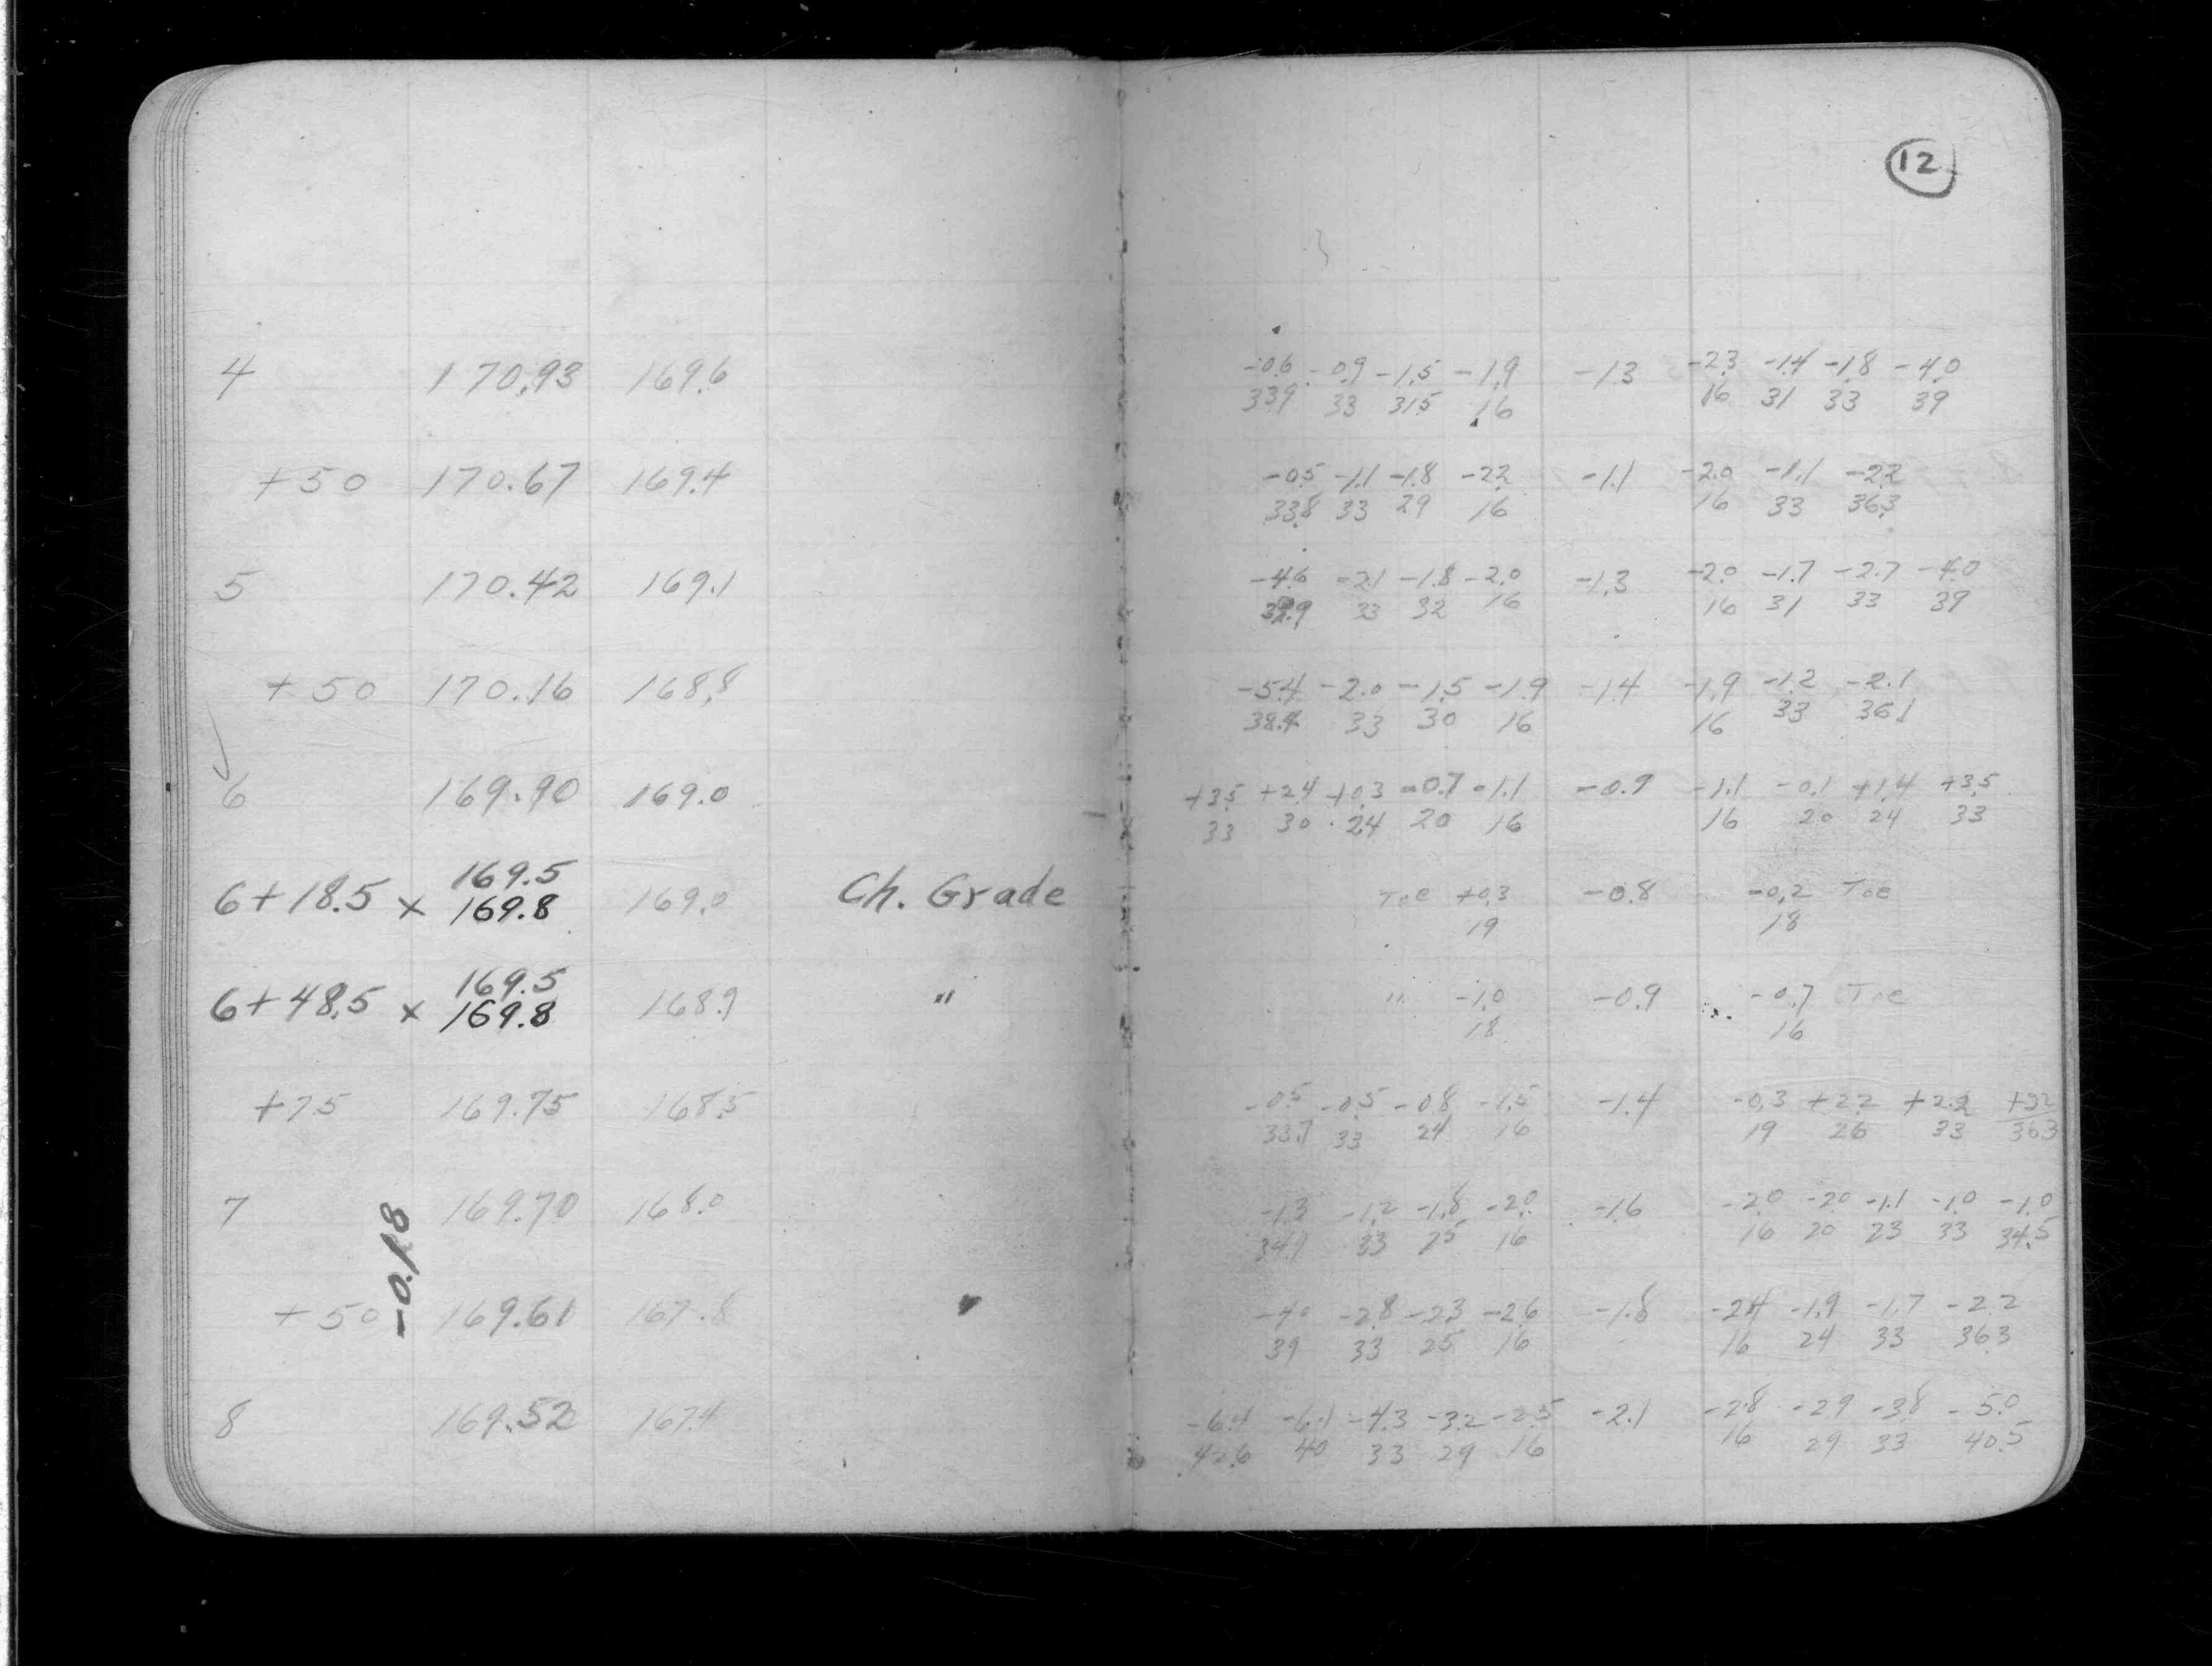 12
4 170.93 169.6 -0.6 -0.9 -1.5 -1.9 -1.3 -2.3 -1.4 -1.8 -4.0
33.9 33 31.5 16 16 31 33 39
+50 170.67 169.4 -0.5 -1.1 -1.8 -2.2 -1.1 -2.0 -1.1 -2.2
33.8 33 29 16 16 33 36.3
5 170.42 169.1 -4.6 -2.1 -1.8 -2.0 -1.3 -2.0 -1.7 -2.7 -4.0
33 32 16 16 31 33 39
+50 170.16 168.8 -5.4 -2.0 -1.5 -1.9 -1.4 -1.9 -1.2 -2.1
33 30 16 16 33 36.1
6 169.90 169.0 +3.5 +2.4 +0.3 -0.7 -1.1 -0.9 -1.1 -0.1 +1.4 +3.5
33 30 24 20 16 16 20 24 33
169.5
6+18.5 x 169.8 169.0 Ch. Grade Toe +0.3 -0.8 -0.2 Toe
19 18
169.5
6+48.5 x 169.8 168.9 " " -1.0 -0.9 -0.7 Toe
18 16
+75 169.75 168.5 -0.5 -0.5 -0.8 -1.5 -1.4 -0.3 +2.2 +2.2 +2.2
33.7 33 24 16 19 26 33 36.3
7 169.70 168.0 -1.3 -1.2 -1.8 -2.0 -1.6 -2.0 -2.0 -1.1 -1.0 -1.0
34.1 33 25 16 16 20 23 33 34.5
-0.18
+50 169.61 167.8 -4.0 -2.8 -2.3 -2.6 -1.8 -2.4 -1.9 -1.7 -2.2
39 33 25 16 16 24 33 36.3
8 169.52 167.4 -6.4 -6.1 -4.3 -3.2 -2.5 -2.1 -2.8 -2.9 -3.8 -5.0
42.6 40 33 29 16 16 29 33 40.5